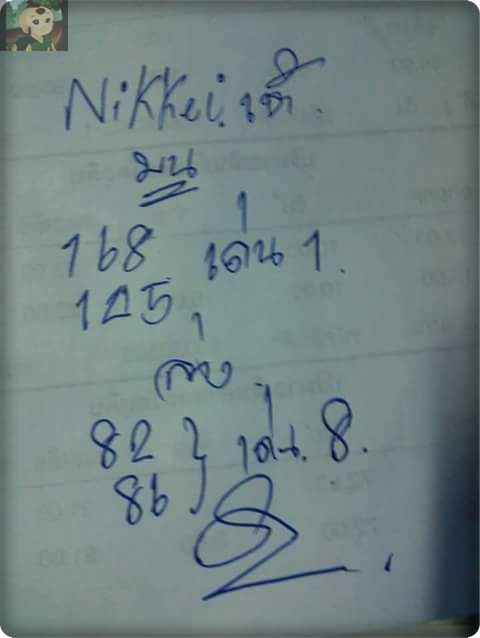 Nikkei เช้า.
บน
168 เด่น 1.
125.
ล่าง.
82 } เด่น. 8.
86